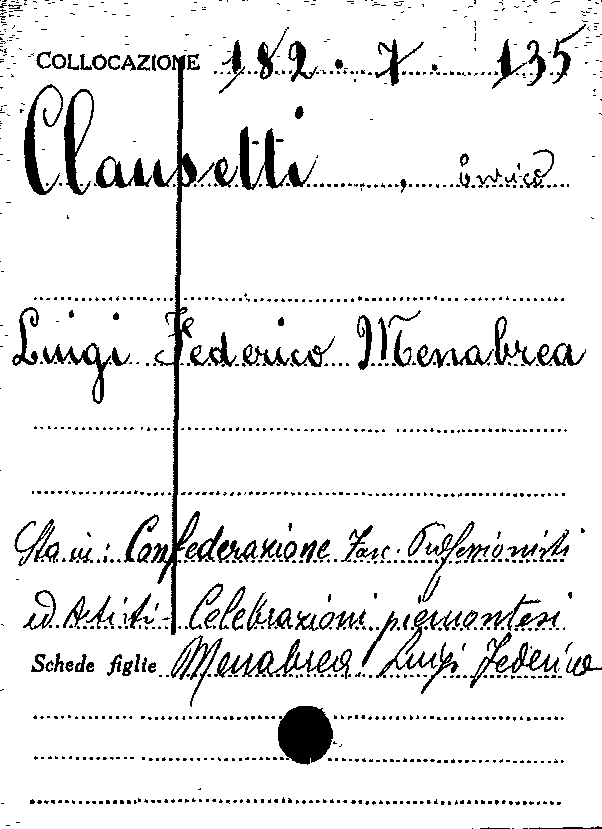 COLLOCAZIONE 182.7.135
Clausetti, Enrico
Luigi Federico Menabrea
Sta in: Confederazione Fasc. Professionisti
ed Artisti - Celebrazioni piemontesi
Schede figlie Menabrea Luigi Federico